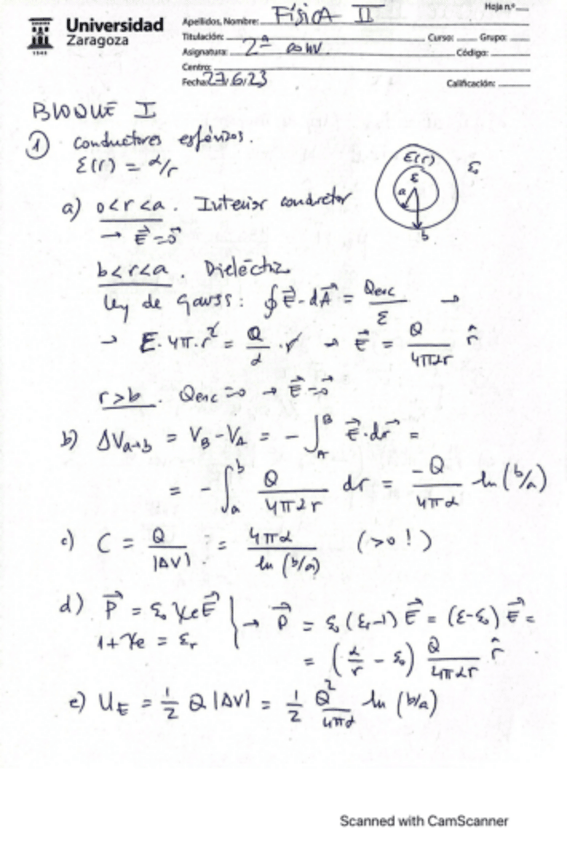 Universidad
Zaragoza
1542
Hoja n.º
Apellidos, Nombre: FÍSICA II
Titulación: Curso: Grupo:
Asignatura: 2ª conv. Código:
Centro:
Fecha: 27/6/23 Calificación:
BLOQUE I
① Conductores esféricos.
ε(r) = α/r
ε(r)
ε
ε₀
a
b
a) 0<r<a. Interior conductor
→ E⃗=0⃗
b<r<a. Dieléctrico
Ley de Gauss: ∮E⃗·dA⃗ = Qenc/ε →
→ E·4π·r² = Q/α · r → E⃗ = Q/4παr r̂
r>b. Qenc=0 → E⃗=0⃗
b) ΔVa→b = VB-VA = -∫_A^B E⃗·dr⃗ =
= -∫_a^b Q/4παr dr = -Q/4πα ln(b/a)
c) C = Q/|ΔV| = 4πα/ln(b/a) (>0!)
d) P⃗ = ε₀ χe E⃗ } → P⃗ = ε₀(εr-1) E⃗ = (ε-ε₀) E⃗ =
1+χe = εr
= (α/r - ε₀) Q/4παr r̂
e) UE = 1/2 Q|ΔV| = 1/2 Q²/4πα ln(b/a)
Scanned with CamScanner